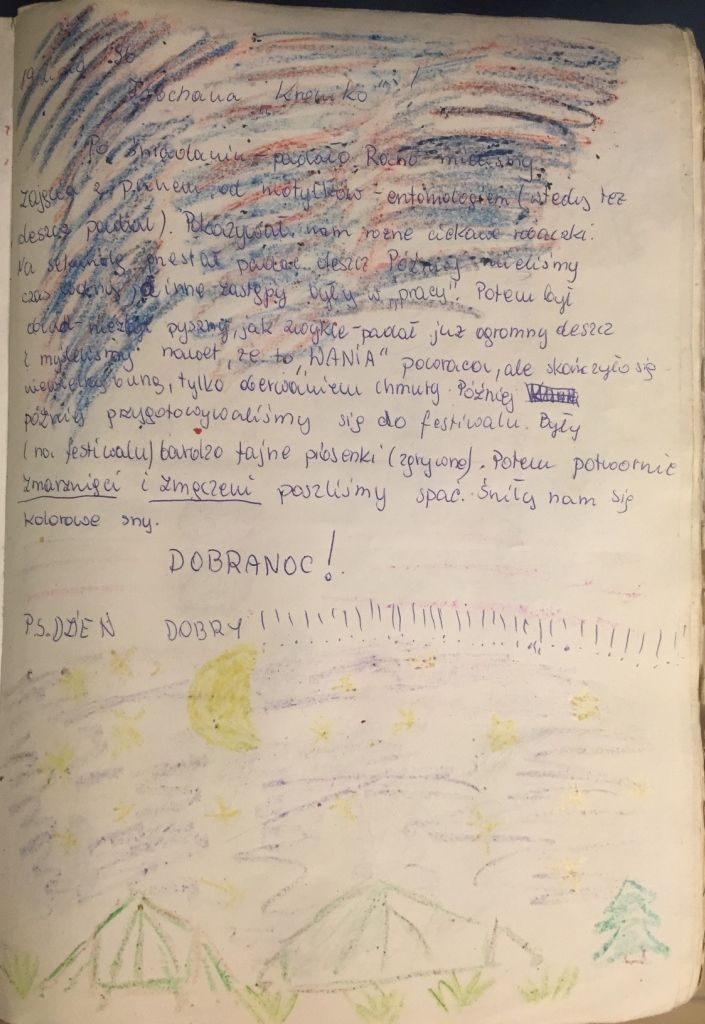 96
Kochana "Kroniko"!
Po śniadaniu - padało. Rano mieliśmy
zajęcia z Panem od motylków - entomologiem (wtedy też
deszcz padał). Pokazywał nam różne ciekawe robaczki.
Na przestał padać deszcz. Później mieliśmy
czas wolny, a inne zastępy były w "pracy". Potem był
obiad - pyszny, jak zwykle - padał już ogromny deszcz
i myśleliśmy nawet, że to "WANIA" powraca, ale skończyło się
burzą, tylko oberwaniem chmury. Później
później przygotowywaliśmy się do festiwalu. Były
(na festiwalu) bardzo fajne piosenki (zgrywone). Potem potwornie
zmarznięci i zmęczeni poszliśmy spać. Śniły nam się
kolorowe sny.
DOBRANOC!
P.S. DZIEŃ DOBRY !!!!!!!!!!!!!!!!!!!!!!!!!!!!!!